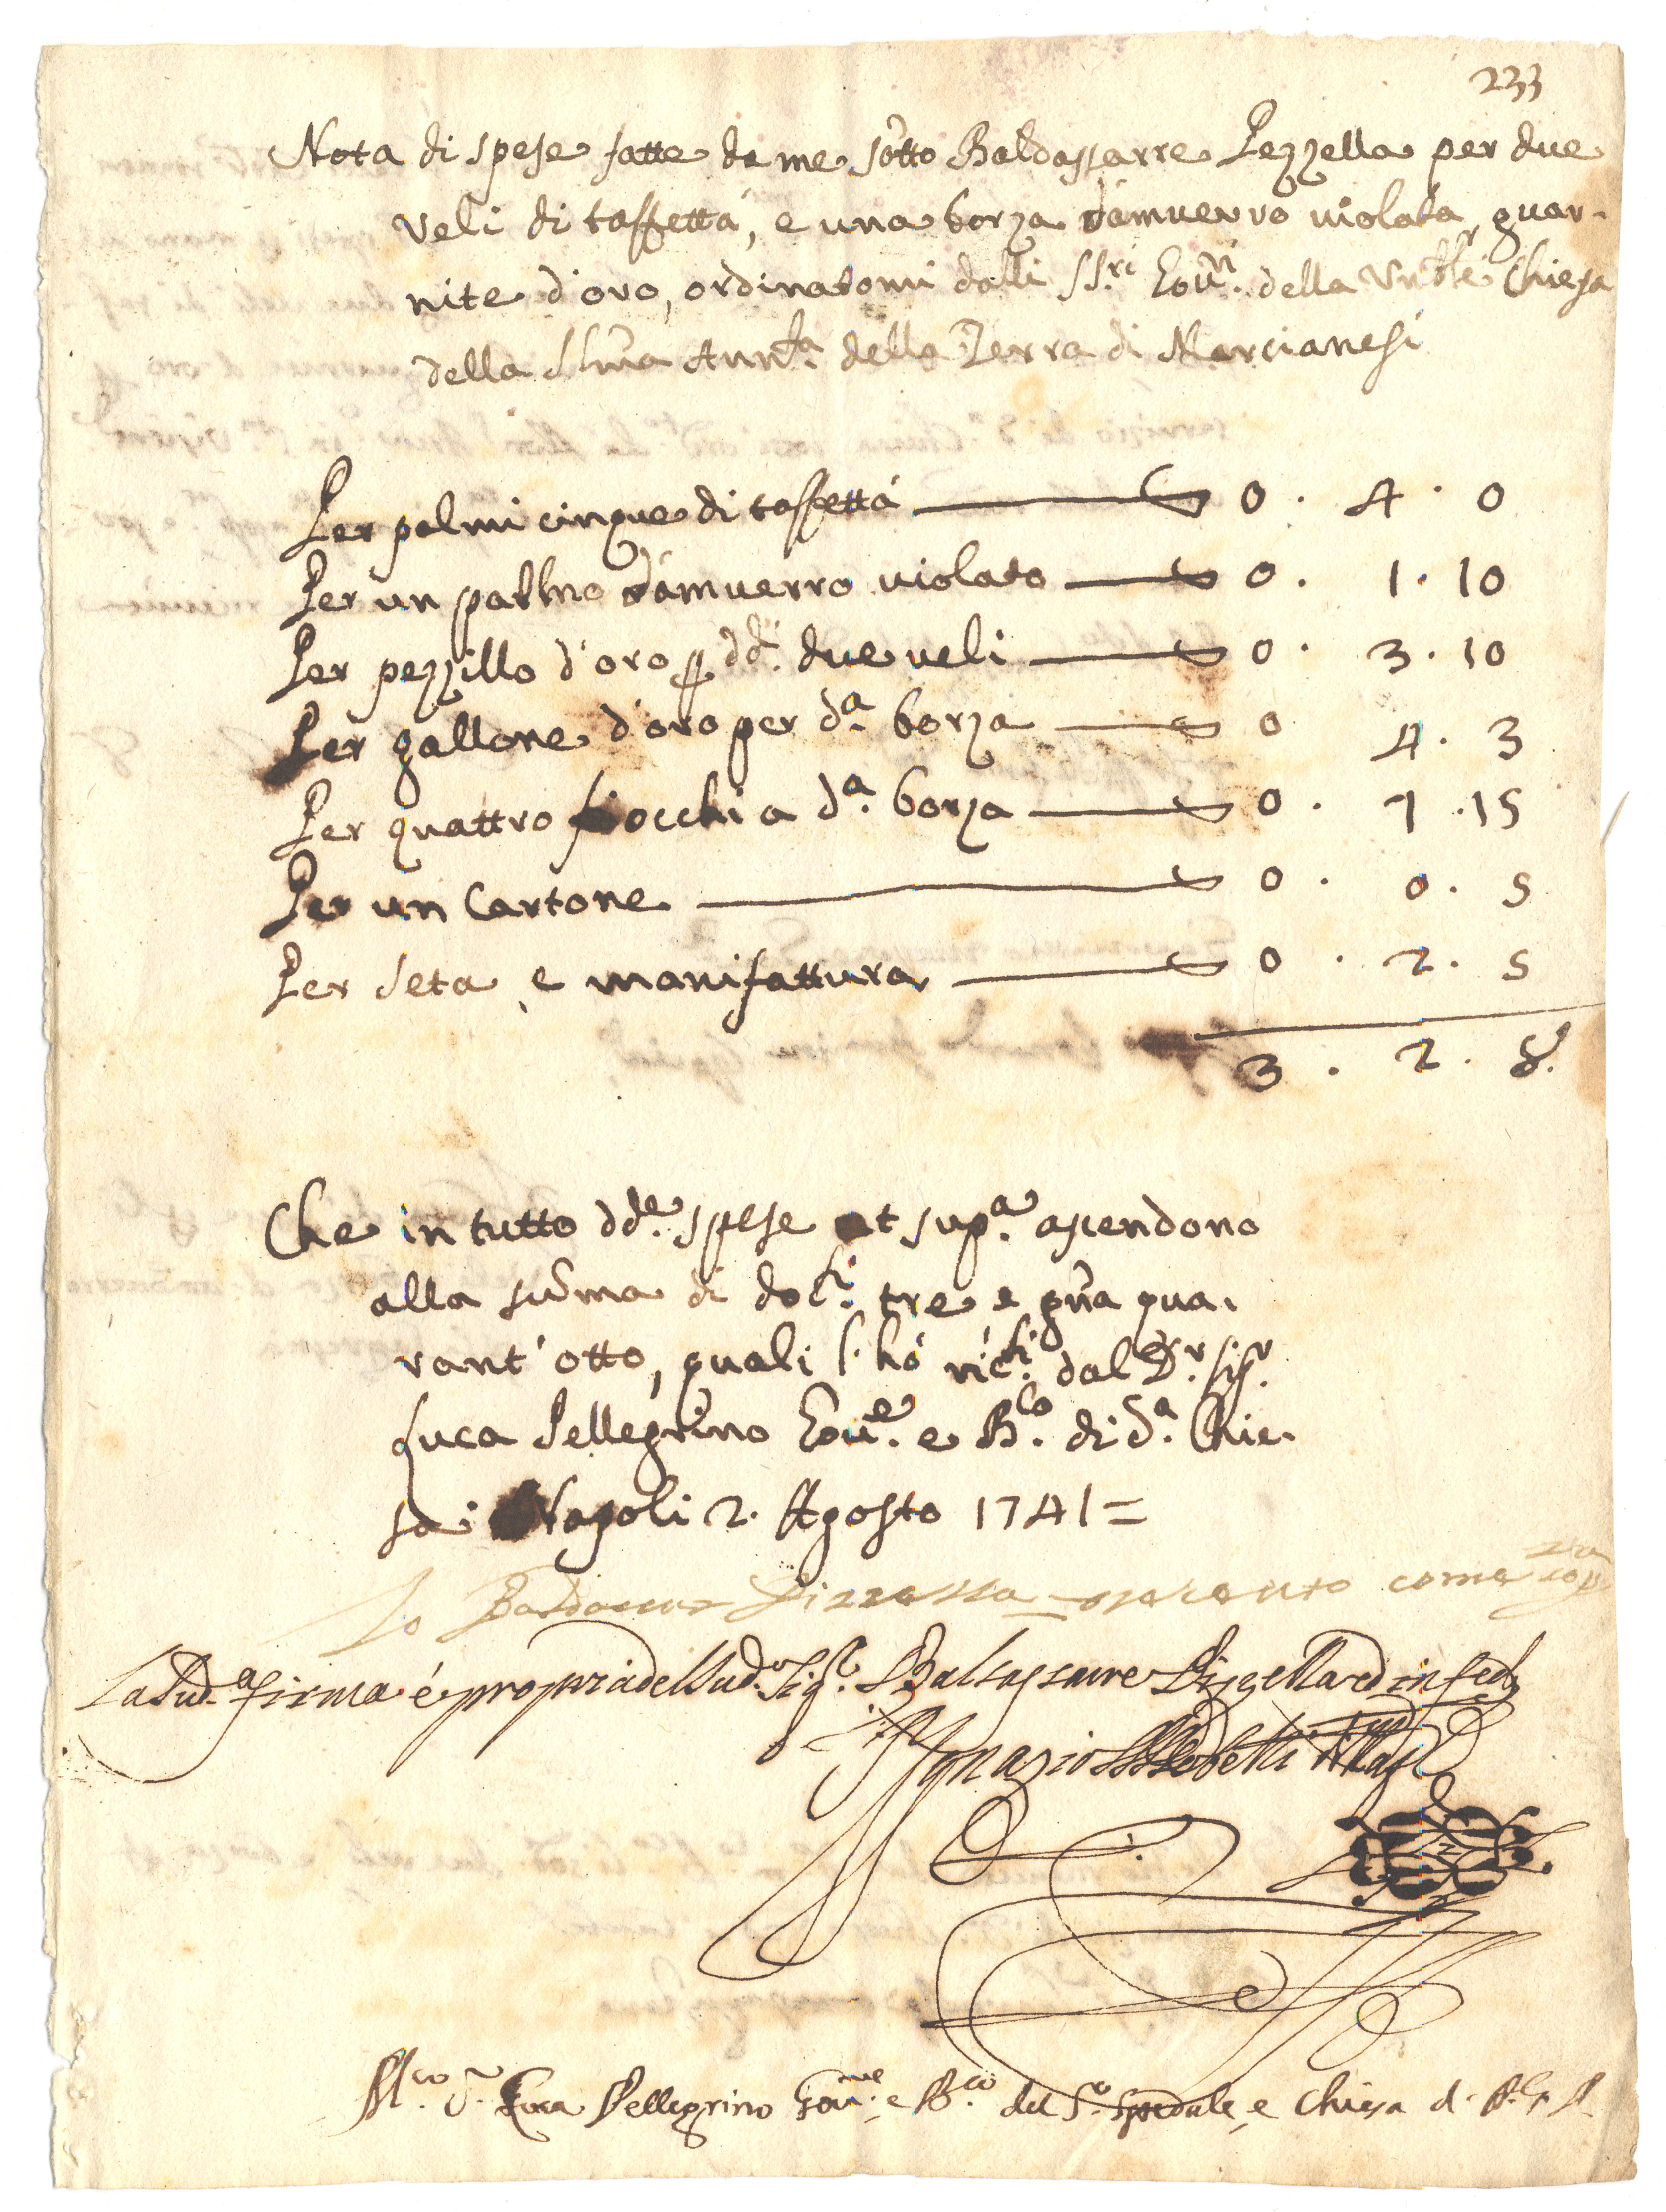 233
Nota di spese fatte da me sotto Baldassarre Pezzella per due
veli di taffettà, e una borza d'amuerro violata, guar-
nite d'oro, ordinatomi dalli SS.ri Gou.ri della Vn.ble Chiesa
della SS.ma Ann.ta della Terra di Marcianesi
Per palmi cinque di taffettà 0 . 4 . 0
Per un palmo d'amuerro violato 0 . 1 . 10
Per pezzillo d'oro p dd.i due veli 0 . 3 . 10
Per gallone d'oro per d.a borza 0 4 . 3
Per quattro fiocchi a d.a borza 0 . 1 . 15
Per un Cartone 0 . 0 . 5
Per seta, e manifattura 0 . 2 . 5
3 . 2 . 8.
Che in tutto dd.e spese ut sup.a ascendono
alla summa di doc.ti tre e gna qua-
rant'otto, quali l'hó ric.ti dal D.r Sig.r
Luca Pellegrino Gou.e e B.lo di d.a Chie-
sa; Napoli 2. Agosto 1741=
Io Baldassar Pizzella come
La sud.a firma é propria del sud.o Sig.r Baldassarre Pizzella ed in fede
Ignazio
M.co S.r Luca Pellegrino Gou.re e B.co del S. Spedale, e Chiesa d.